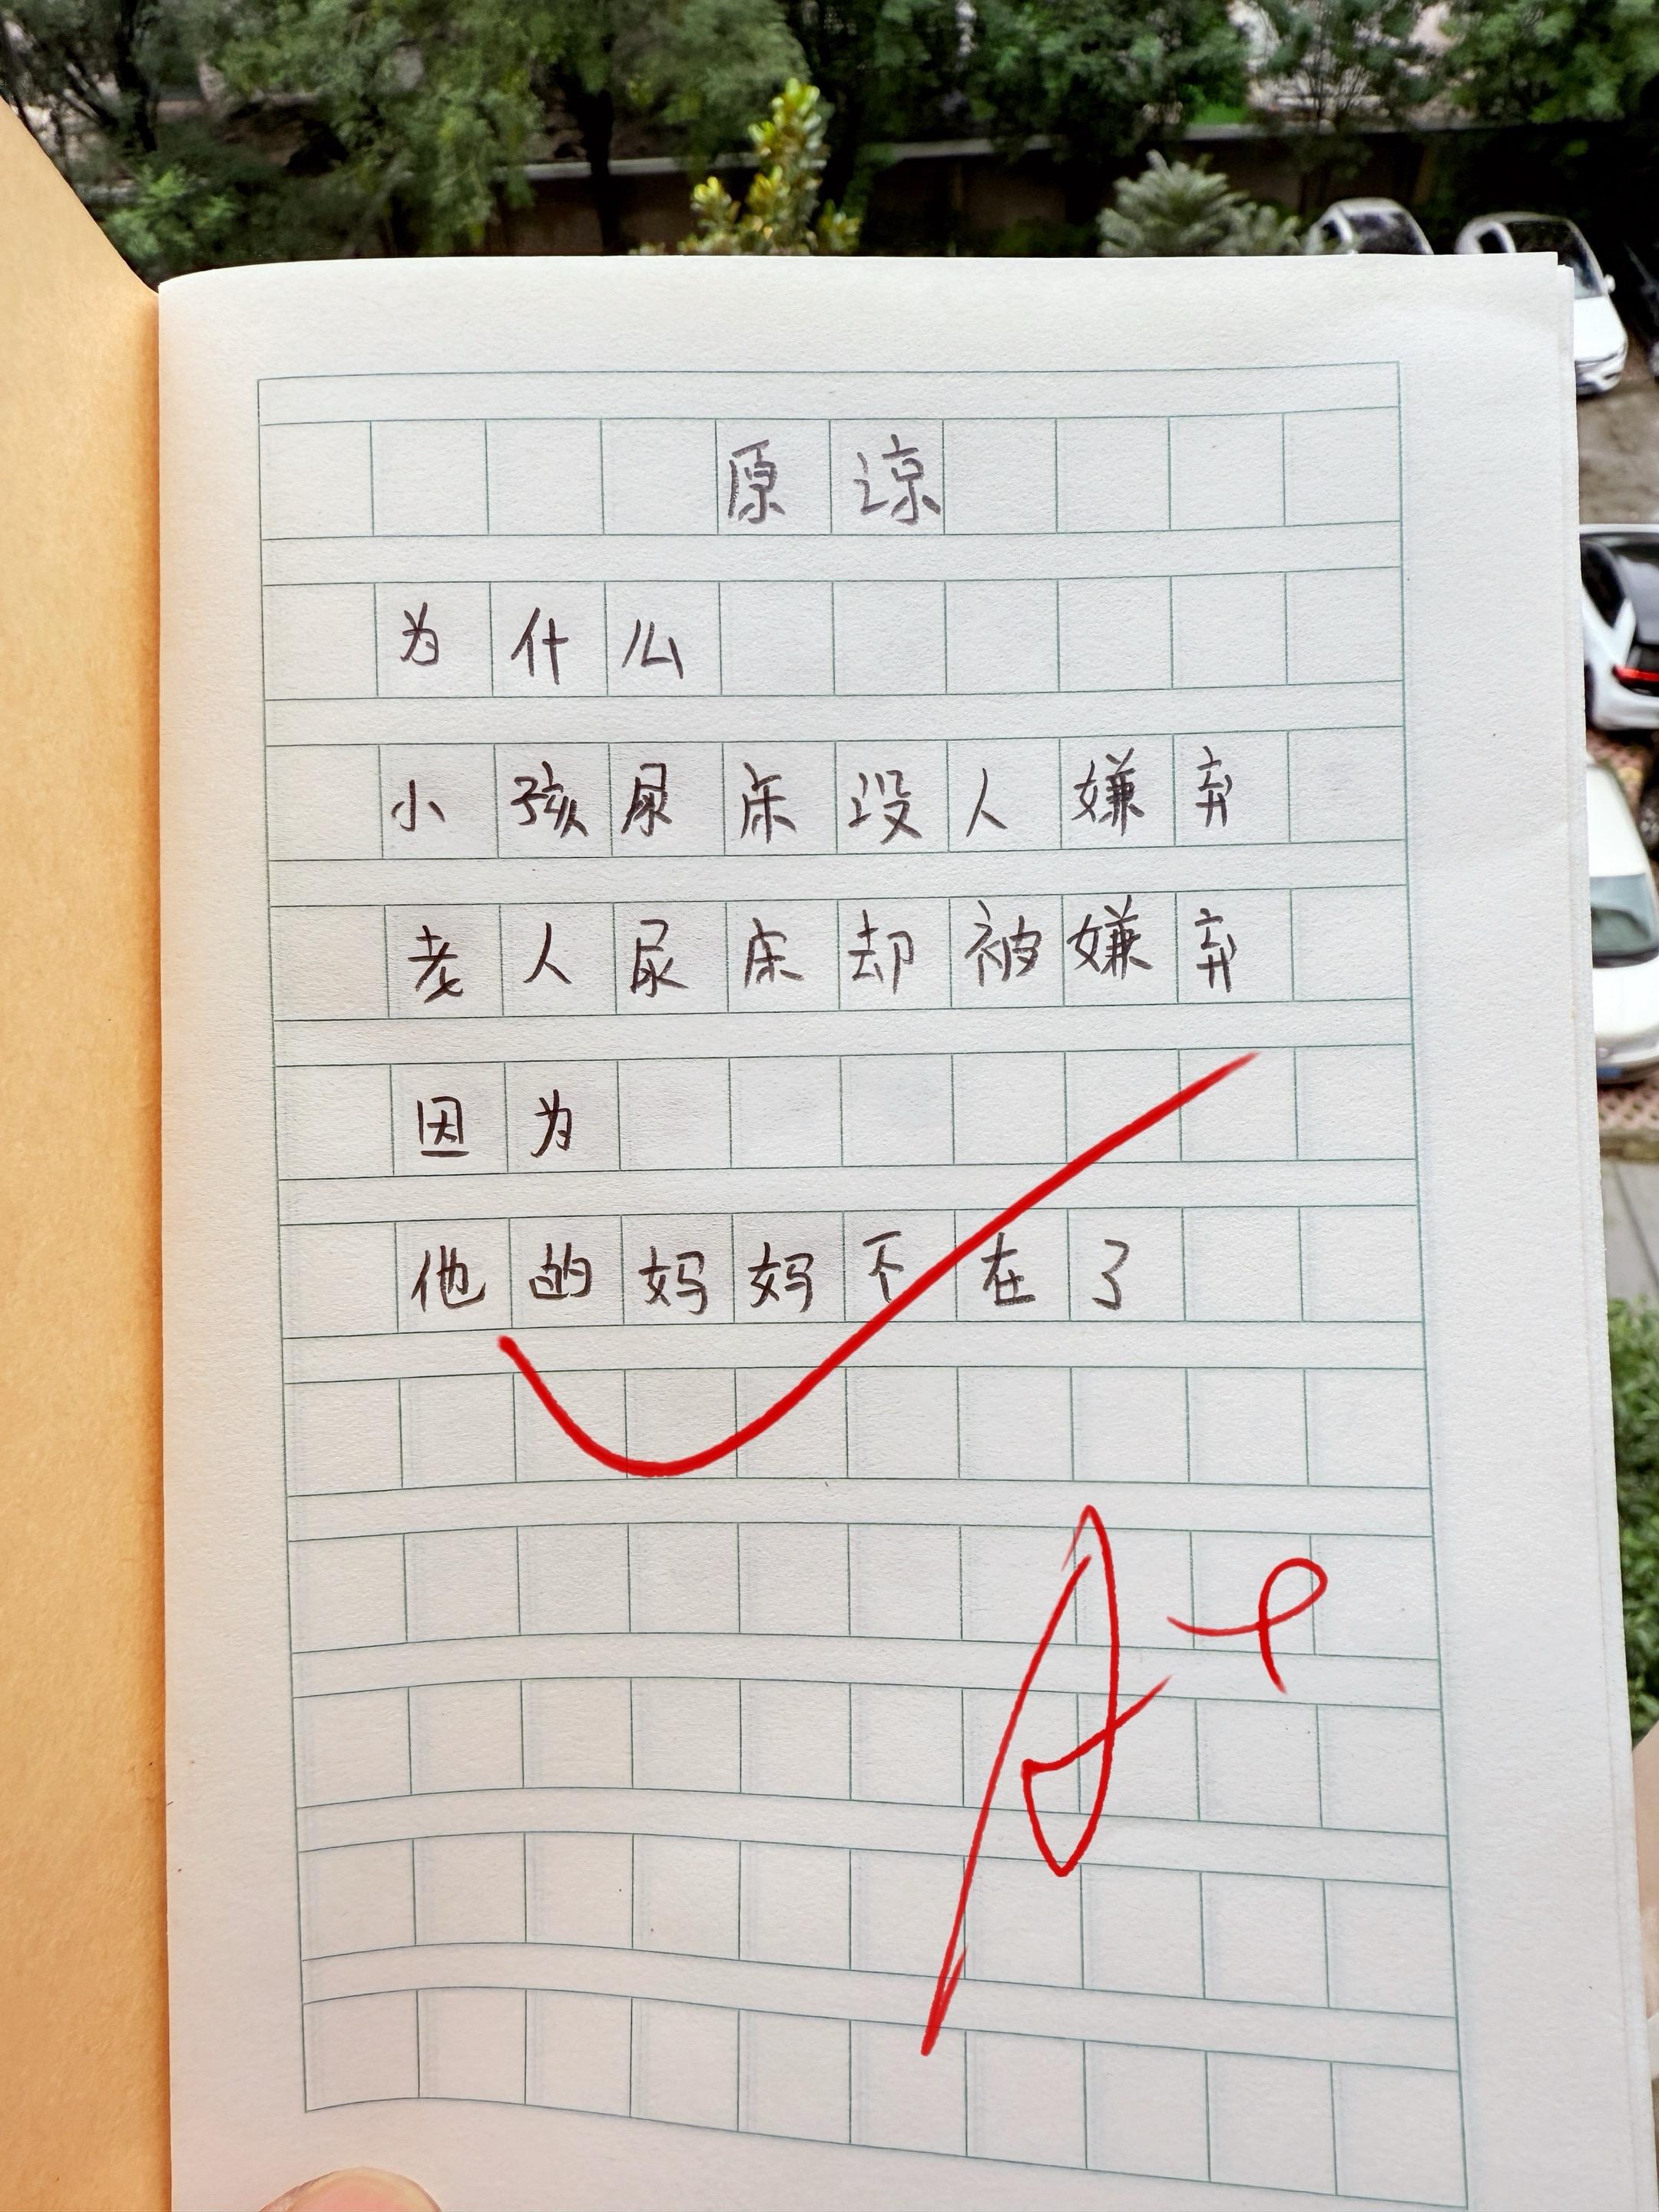 原谅
为什么
小孩尿床没人嫌弃
老人尿床却被嫌弃
因为
他的妈妈不在了
A+